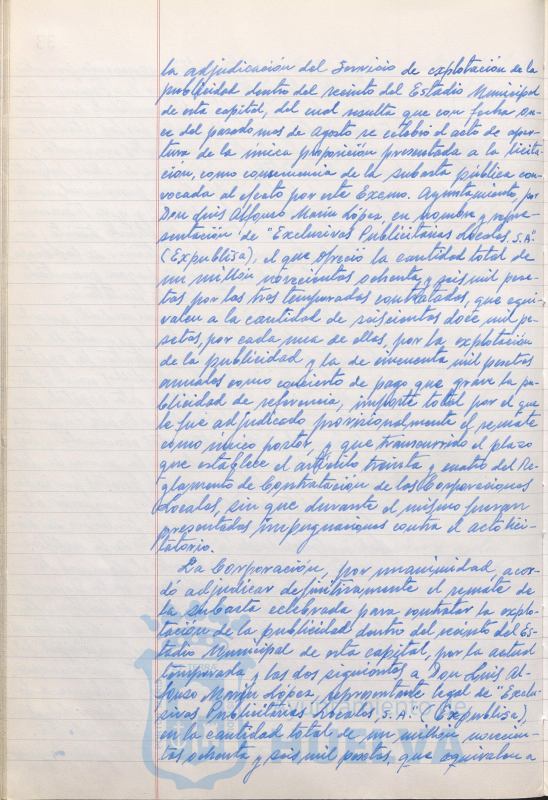 la adjudicación del Servicio de explotación de la
publicidad dentro del recinto del Estadio Municipal
de esta capital, del cual resulta que con fecha on-
ce del pasado mes de agosto se celebró el acto de aper-
tura de la única proposición presentada a la licita-
ción, como consecuencia de la subasta pública con-
vocada al efecto por este Excmo. Ayuntamiento, por
Don Luis Alfonso Marín López, en nombre y repre-
sentación de "Exclusivas Publicitarias Locales, S.A."
(Expublisa), el que ofreció la cantidad total de
un millón novecientas ochenta y seis mil pese-
tas, por las tres temporadas contratadas, que equi-
valen a la cantidad de seiscientas doce mil pe-
setas, por cada una de ellas, por la explotación
de la publicidad y la de cincuenta mil pesetas
anuales como concierto de pago que grava la pu-
blicidad de referencia, importe total por el que
le fue adjudicado provisionalmente el remate
como único postor, y que transcurrido el plazo
que establece el artículo treinta y cuatro del Re-
glamento de Contratación de las Corporaciones
Locales, sin que durante el mismo fueran
presentadas impugnaciones contra el acto lici-
tatorio.
La Corporación, por unanimidad, acor-
dó adjudicar definitivamente el remate de
la subasta celebrada para contratar la explo-
tación de la publicidad dentro del recinto del Es-
tadio Municipal de esta capital, por la actual
temporada y las dos siguientes a Don Luis Al-
fonso Marín López, representante legal de "Exclu-
sivas Publicitarias Locales, S.A." (Expublisa),
en la cantidad total de un millón novecien-
tas ochenta y seis mil pesetas, que equivalen a
Ayuntamiento de
HUELVA